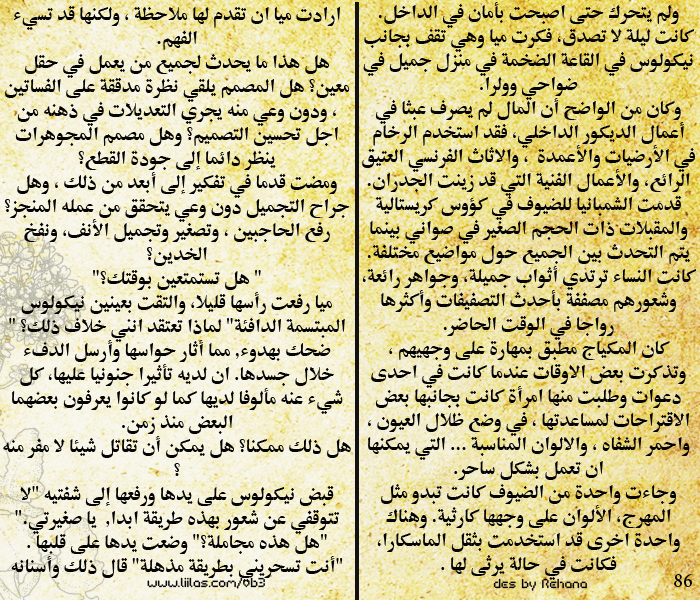 ولم يتحرك حتى اصبحت بأمان في الداخل.
كانت ليلة لا تصدق، فكرت ميا وهي تقف بجانب
نيكولوس في القاعة الضخمة في منزل جميل في
ضواحي وولرا.
وكان من الواضح أن المال لم يصرف عبثا في
أعمال الديكور الداخلي، فقد استخدم الرخام
في الأرضيات والأعمدة ، والاثاث الفرنسي العتيق
الرائع، والأعمال الفنية التي قد زينت الجدران.
قدمت الشمبانيا للضيوف في كؤوس كريستالية
والمقبلات ذات الحجم الصغير في صواني بينما
يتم التحدث بين الجميع حول مواضيع مختلفة.
كانت النساء ترتدي أثواب جميلة، وجواهر رائعة،
وشعورهم مصففة بأحدث التصفيفات وأكثرها
رواجا في الوقت الحاضر.
كان المكياج مطبق بمهارة على وجهيهم ،
وتذكرت بعض الاوقات عندما كانت في احدى
دعوات وطلبت منها امرأة كانت بجانبها بعض
الاقتراحات لمساعدتها ، في وضع ظلال العيون ،
واحمر الشفاه ، والالوان المناسبة ... التي يمكنها
ان تعمل بشكل ساحر.
وجاءت واحدة من الضيوف كانت تبدو مثل
المهرج، الألوان على وجهها كارثية. وهناك
واحدة اخرى قد استخدمت بثقل الماسكارا،
فكانت في حالة يرثى لها .
86
des by Rehana
ارادت ميا ان تقدم لها ملاحظة ، ولكنها قد تسيء
الفهم.
هل هذا ما يحدث لجميع من يعمل في حقل
معين؟ هل المصمم يلقي نظرة مدققة على الفساتين
، ودون وعي منه يجري التعديلات في ذهنه من
اجل تحسين التصميم؟ وهل مصمم المجوهرات
ينظر دائما إلى جودة القطع؟
ومضت قدما في تفكير إلى أبعد من ذلك ، وهل
جراح التجميل دون وعي يتحقق من عمله المنجز؟
رفع الحاجبين ، وتصغير وتجميل الأنف، ونفخ
الخدين؟
" هل تستمتعين بوقتك؟"
ميا رفعت رأسها قليلا، والتقت بعينين نيكولوس
المبتسمة الدافئة" لماذا تعتقد انني خلاف ذلك؟ "
ضحك بهدوء, مما أثار حواسها وأرسل الدفء
خلال جسدها. ان لديه تأثيرا جنونيا عليها، كل
شيء عنه مألوفا لديها كما لو كانوا يعرفون بعضهما
البعض منذ زمن.
هل ذلك ممكنا؟ هل يمكن أن تقاتل شيئا لا مفر منه
؟
قبض نيكولوس على يدها ورفعها إلى شفتيه "لا
تتوقفي عن شعور بهذه طريقة ابدا, يا صغيرتي."
"هل هذه مجاملة؟" وضعت يدها على قلبها .
"أنت تسحريني بطريقة مذهلة" قال ذلك وأسنانه
www.liilas.com/vb3